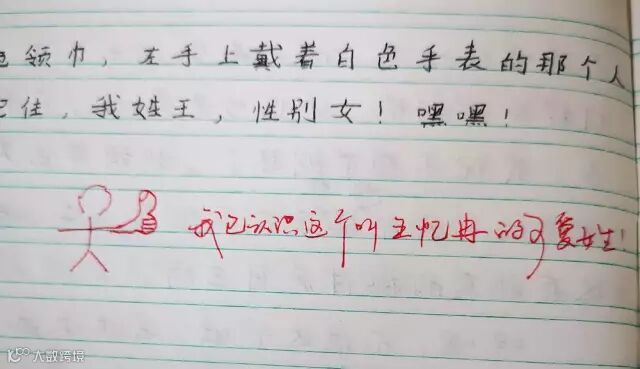 领巾，左手上戴着白色手表的那个人
住，我姓王，性别女！嘿嘿！
我已认识这个叫王忆冉的可爱女生！
大数跨境